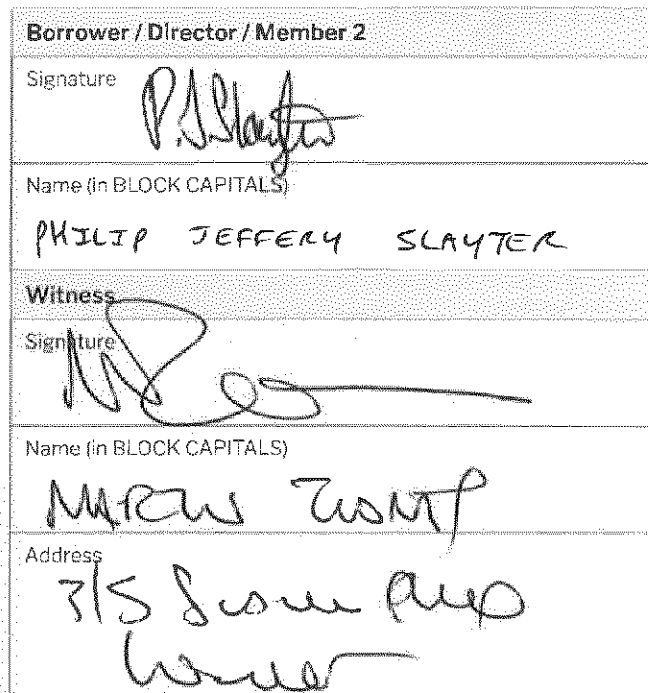 Borrower / Director / Member 2
Signature
P.J.Slayter
Name (in BLOCK CAPITALS)
PHILIP JEFFERY SLAYTER
Witness
Signature
Name (in BLOCK CAPITALS)
MARTIN
Address
3/5